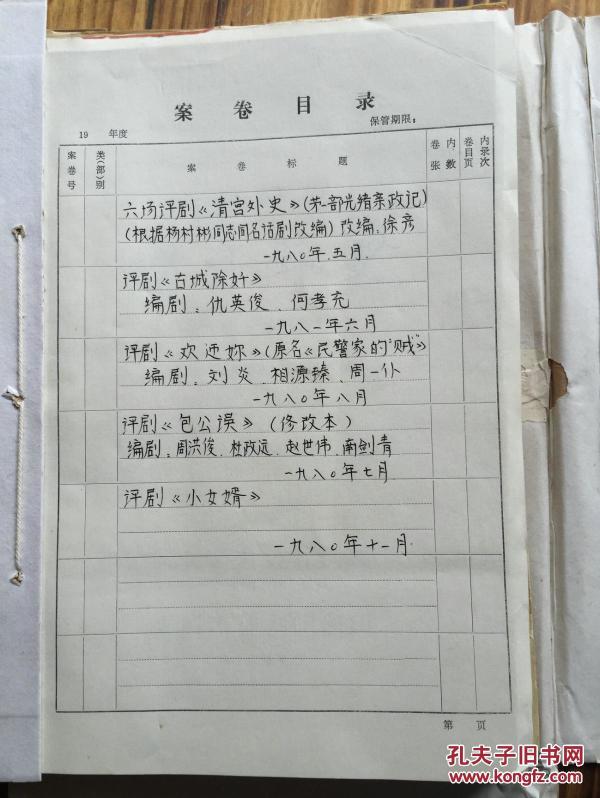 案卷目录
19 年度
保管期限：
案卷号
类(部)别
案卷标题
卷内张数
卷内目录页次
六场评剧《清宫外史》(第一部光绪亲政记)
(根据杨村彬同志同名话剧改编) 改编：徐彦
一九八〇年.五月.
评剧《古城除奸》
编剧：仇英俊、何孝充
一九八一年六月
评剧《欢迎妳》(原名《民警家的"贼"》
编剧：刘炎、相源臻、周一仆
一九八〇年八月
评剧《包公误》(修改本)
编剧：周洪俊、杜政远、赵世伟、南剑青
一九八〇年七月
评剧《小女婿》
一九八〇年十一月.
第 页
孔夫子旧书网
www.kongfz.com